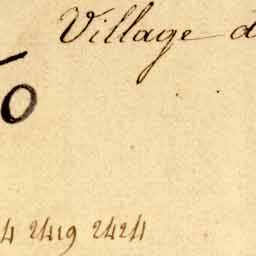 Village d
0
4 2419 2424